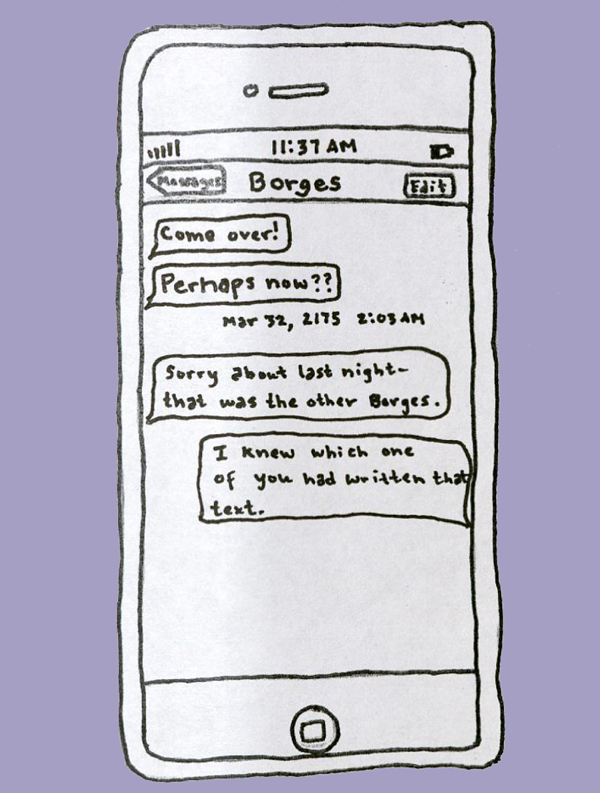 11:37 AM
Messages Borges Edit
Come over!
Perhaps now??
Mar 32, 2175 2:03 AM
Sorry about last night-
that was the other Borges.
I knew which one
of you had written that
text.